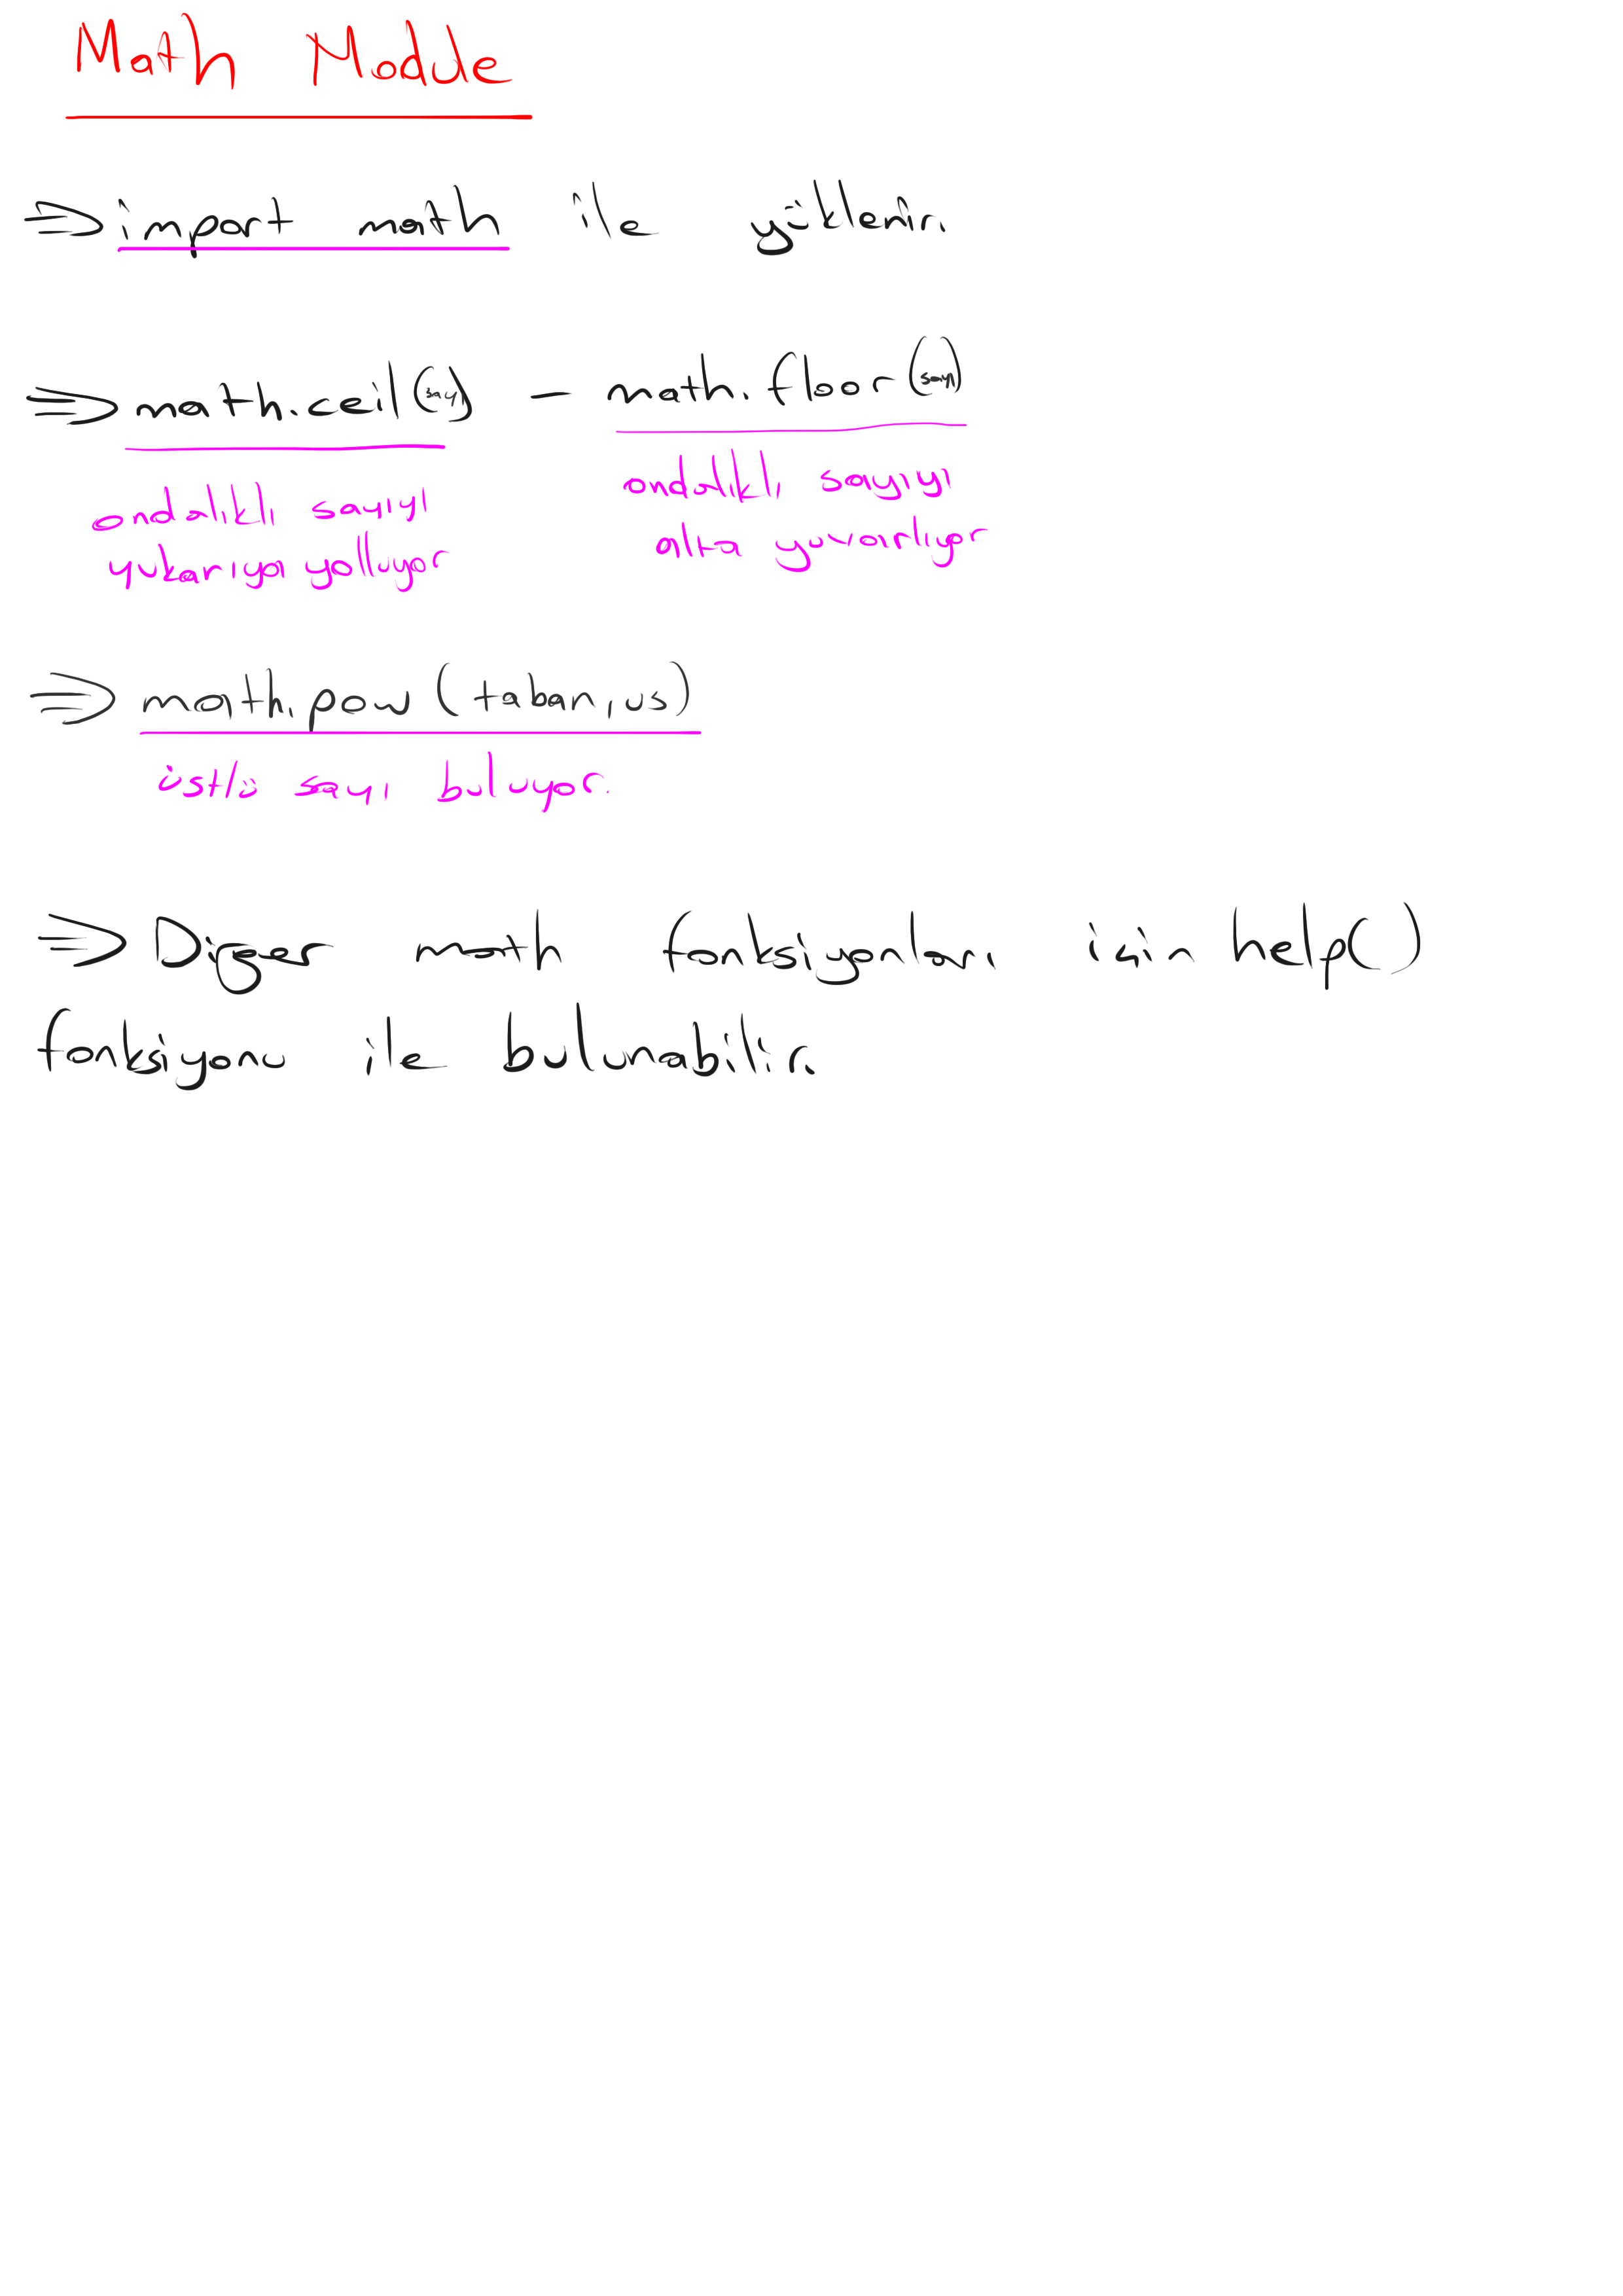 Math Module
⇒ import math ile yüklenir.
⇒ math.ceil(sayı) – math.floor(sayı)
ondalıklı sayıyı
yukarıya yolluyor
ondalıklı sayıyı
alta yuvarlıyor
⇒ math.pow(taban,üs)
üstlü sayı buluyor.
⇒ Diğer math fonksiyonları için help()
fonksiyonu ile bulunabilir.